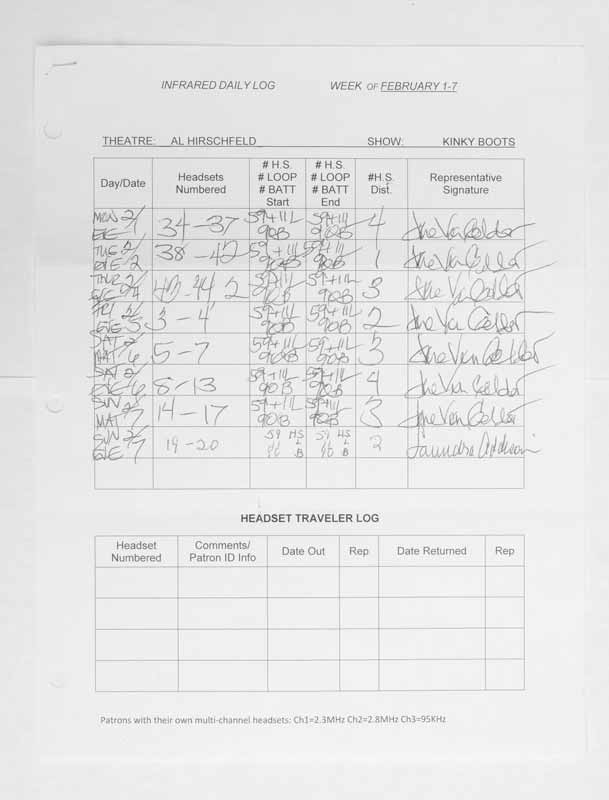 INFRARED DAILY LOG WEEK OF FEBRUARY 1-7
THEATRE: AL HIRSCHFELD SHOW: KINKY BOOTS
Day/Date Headsets Numbered # H.S. # LOOP # BATT Start # H.S. # LOOP # BATT End #H.S. Dist. Representative Signature
MON 2/1 EVE 34-37 59+11L 90B 59+11L 90B 4
TUE 2/2 EVE 38-42 59+11L 90B 59+11L 90B 1
THUR 2/4 EVE 43-44 2 59+11L 90B 59+11L 90B 3
FRI 2/5 EVE 3-4 59+11L 90B 59+11L 90B 2
SAT 2/6 MAT 5-7 59+11L 90B 59+11L 90B 3
SAT 2/6 EVE 8-13 59+11L 90B 59+11L 90B 4
SUN 2/7 MAT 14-17 59+11L 90B 59+11L 90B 3
SUN 2/7 EVE 19-20 59 HS L 90 B 59 HS L 90 B 2
HEADSET TRAVELER LOG
Headset Numbered Comments/ Patron ID Info Date Out Rep Date Returned Rep
Patrons with their own multi-channel headsets: Ch1=2.3MHz Ch2=2.8MHz Ch3=95KHz